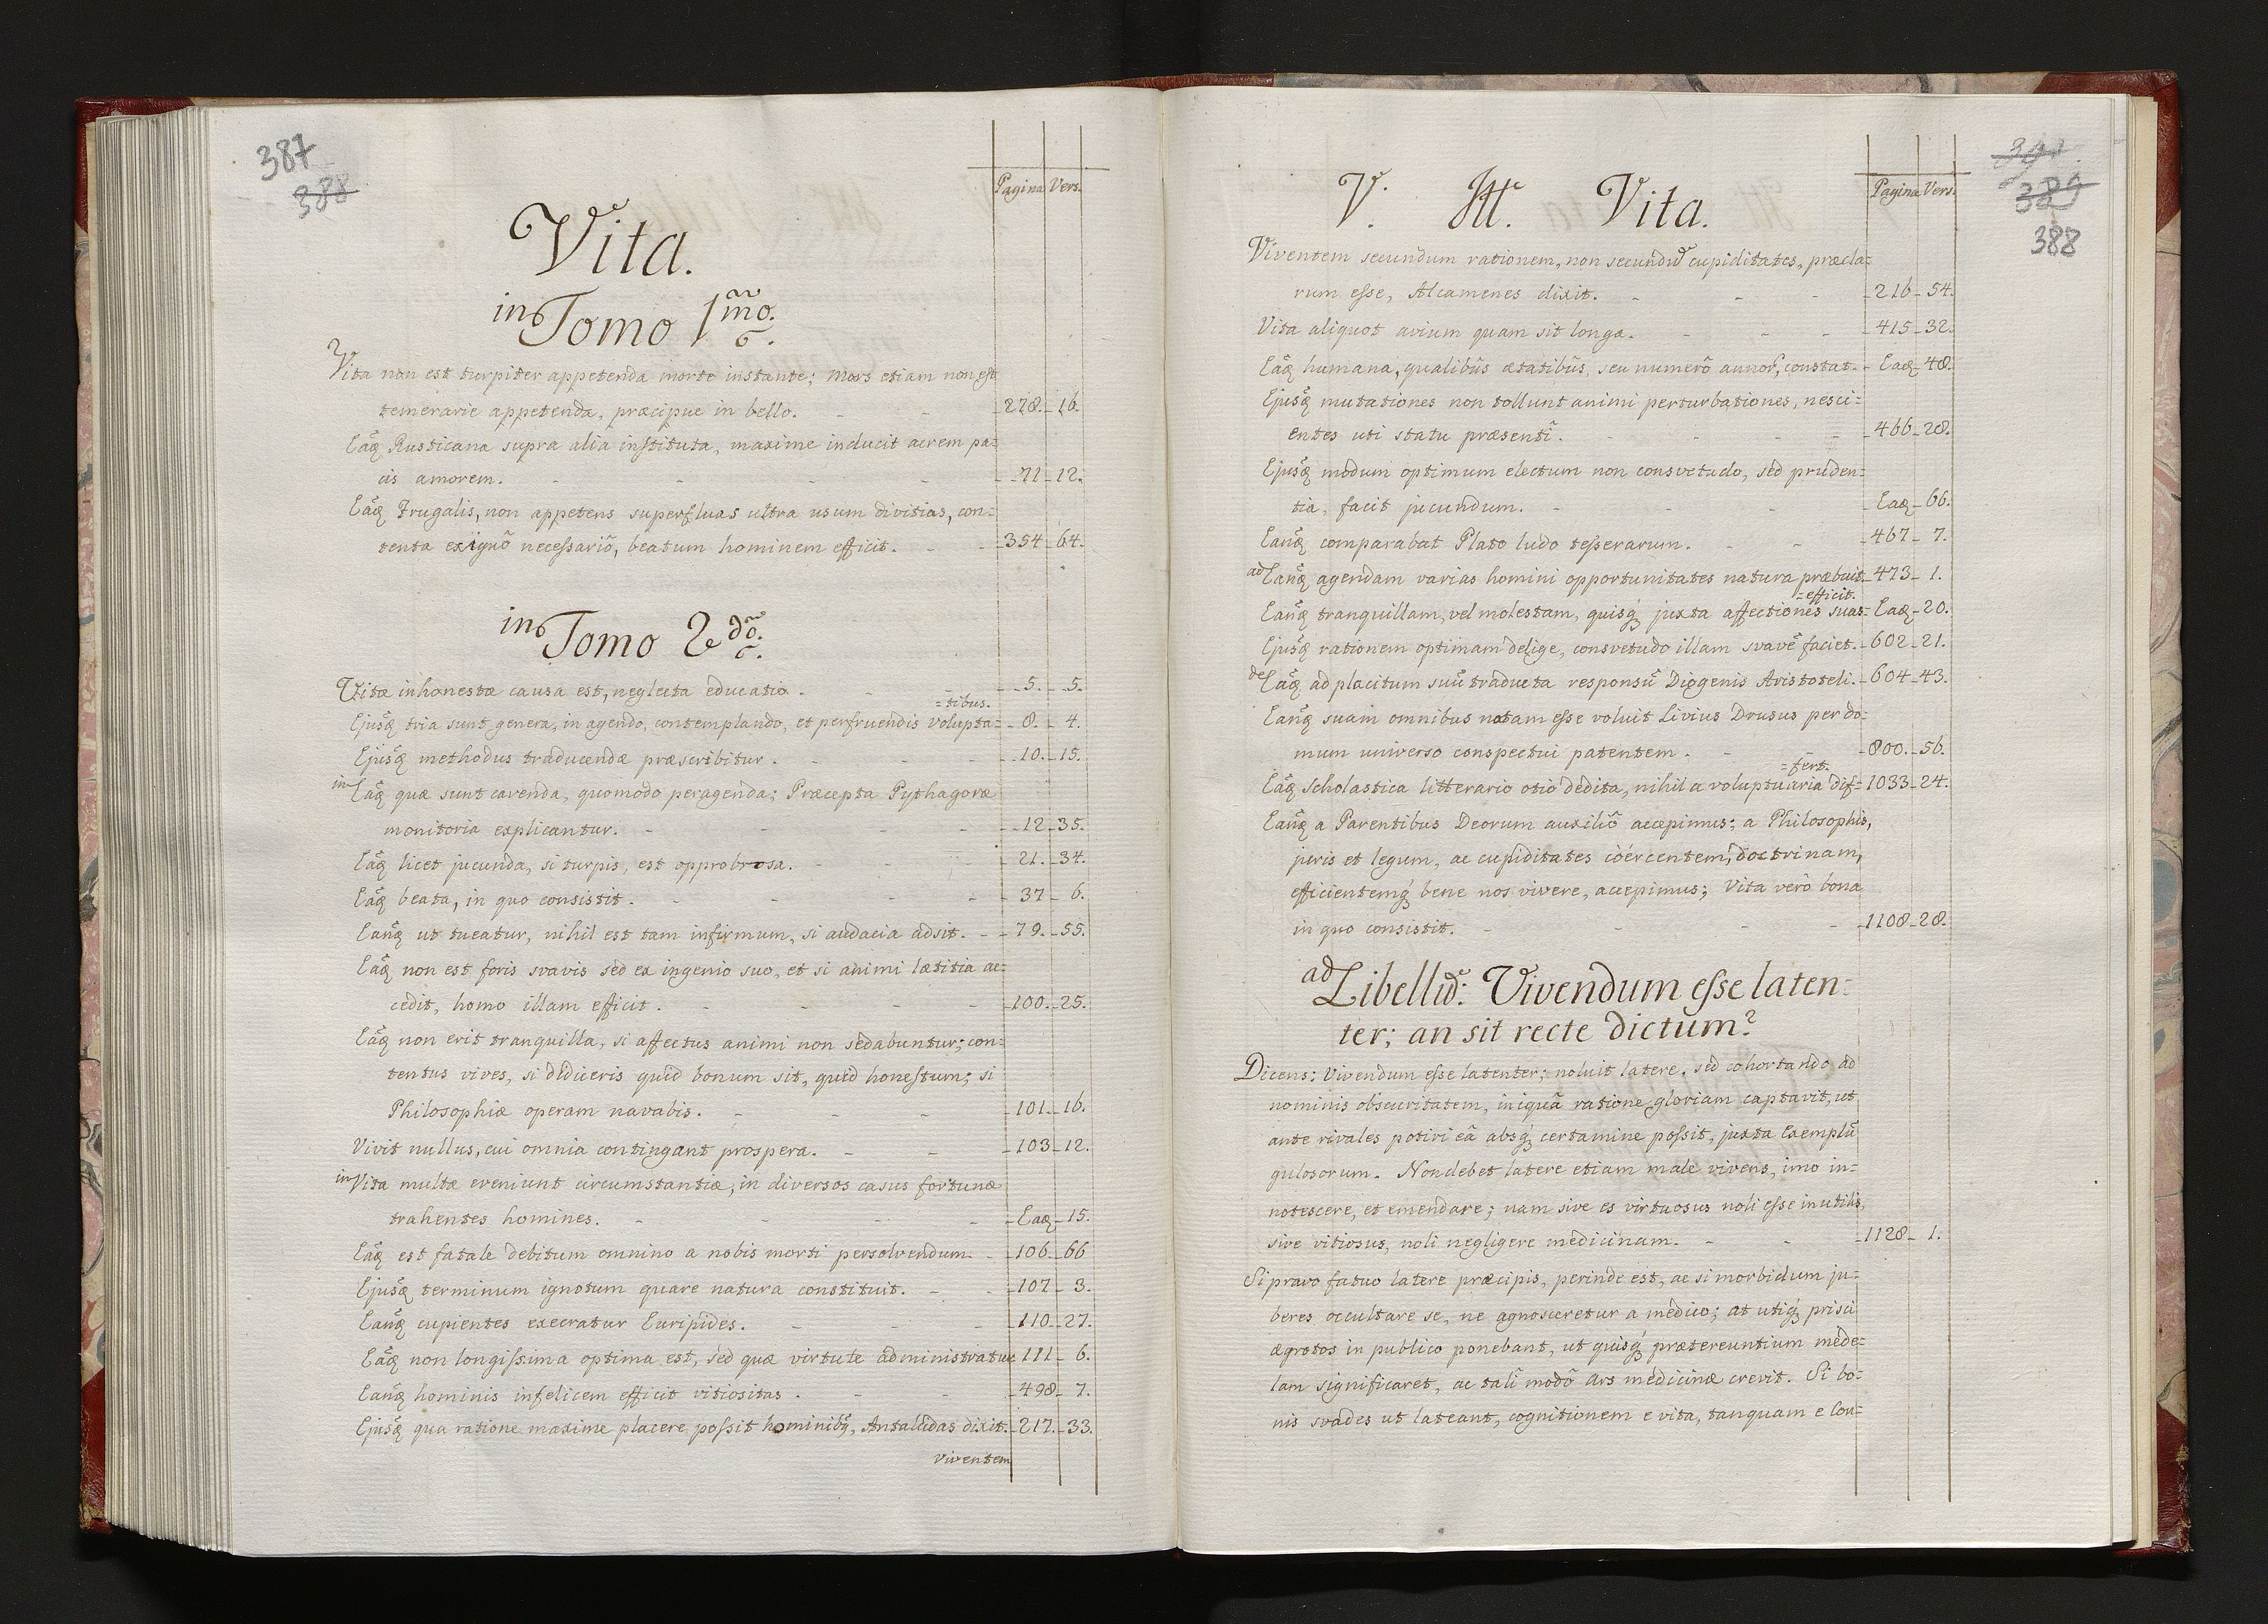 387
388
Pagina Vers.
Vita.
in Tomo 1mo.
Vita non est turpiter appetenda morte instante; Mors etiam non est
temerarie appetenda, præcipue in bello. - - 278. 16.
Eãq Rusticana supra alia instituta, maxime inducit acrem pa=
cis amorem. - - - - 71 - 12.
Eãq Frugalis, non appetens superfluas ultra usum divitias, con=
tenta exiguõ necessariõ, beatum hominem efficit. - 354 - 64.
in Tomo 2dõ.
Vitæ inhonestæ causa est, neglecta educatio. - - 5. - 5.
=tibus.
Ejusq tria sunt genera, in agendo, contemplando, et perfruendis volupta= 8. - 4.
Ejusq methodus traducendæ præscribitur. - - 10. - 15.
in Eãq quæ sunt cavenda, quomodo peragenda; Præcepta Pythagoræ
monitoria explicantur. - - - - 12 - 35.
Eãq licet jucunda, si turpis, est opprobrosa. - - 21. - 34.
Eãq beata, in quo consistit. - - - 37 - 6.
Eanq ut tueatur, nihil est tam infirmum, si audacia adsit. - 79. - 55.
Eãq non est foris svavis sed ex ingenio suo, et si animi lætitia ac=
cedit, homo illam efficit. - - - 100. - 25.
Eãq non erit tranquilla, si affectus animi non sedabuntur; con=
tentus vives, si didiceris quid bonum sit, quid honestum; si
Philosophiæ operam navabis. - - - 101. - 16.
Vivit nullus, cui omnia contingant prospera. - - 103 - 12.
in Vita multæ eveniunt circumstantiæ, in diversos casus fortunæ
trahentes homines. - - - - Eaq - 15.
Eãq est fatale debitum omnino a nobis morti persolvendum - 106 - 66
Ejusq terminum ignotum quare natura constituit. - 107 - 3.
Eanq cupientes execratur Euripides. - - - 110. - 27.
Eãq non longissima optima est, sed quæ virtute administratur 111 - 6.
Eanq hominis infelicem efficit vitiositas. - - 498 - 7.
Ejusq qua ratione maxime placere possit hominibq, Antalcidas dixit. 217. - 33.
Viventem
388
Pagina Vers.
V. Vita.
Viventem secundum rationem, non secundũ cupiditates, præcla=
rum esse, Alcamenes dixit. - - - 216 - 54.
Vita aliquot avium quam sit longa. - - - 415 - 32.
Eãq humana, qualibũs ætatibũs, seu numerõ annor, constat. - Eaq - 48.
Ejusq mutationes non tollunt animi perturbationes, nesci=
entes uti statu præsentĩ. - - - - 466 - 28.
Ejusq modum optimum electum non consvetudo, sed pruden=
tia, facit jucundum. - - - Eaq - 66.
Eanq comparabat Plato ludo tesserarum. - - 467 - 7.
ad Eanq agendam varias homini opportunitates natura præbuit. 473 - 1.
=efficit.
Eanq tranquillam, vel molestam, quisq juxta affectiones suas= Eaq - 20.
Ejusq rationem optimam delige, consvetudo illam svavẽ faciet. - 602 - 21.
de Eãq ad placitum suũ traducta responsũ Diogenis Aristoteli. - 604 - 43.
Eanq suam omnibus notam esse voluit Livius Drusus per do=
mum universo conspectui patentem. - - 800. - 56.
=fert.
Eãq scholastica litterario otio dedita, nihil a voluptuaria dif= 1033 - 24.
Eanq a Parentibus Deorum auxiliõ accepimus; a Philosophis,
juris et legum, ac cupiditates coërcentem, doctrinam,
efficientemq bene nos vivere, accepimus; Vita verò bona
in quo consistit. - - - - 1108 - 28.
ad Libellũ: Vivendum esse laten=
ter; an sit recte dictum?
Dicens: Vivendum esse latenter; noluit latere, sed cohortando ad
nominis obscuritatem, iniquã ratione gloriam captavit, ut
ante rivales potiri eã absq certamine possit, juxta Exemplũ
gulosorum. Non debet latere etiam male vivens, imo in=
notescere, et emendare; nam sive es virtuosus noli esse inutilis,
sive vitiosus, noli negligere medicinam. - - 1128 - 1.
Si pravo fatuo latere præcipis, perinde est, ac si morbidum ju=
beres occultare se, ne agnosceretur a medico; at utiq prisci
ægrotos in publico ponebant, ut quisq prætereuntium mede=
lam significaret, ac tali modõ Ars medicinæ crevit. Si bo=
nis svades ut lateant, cognitionem e vita, tanquam e con=